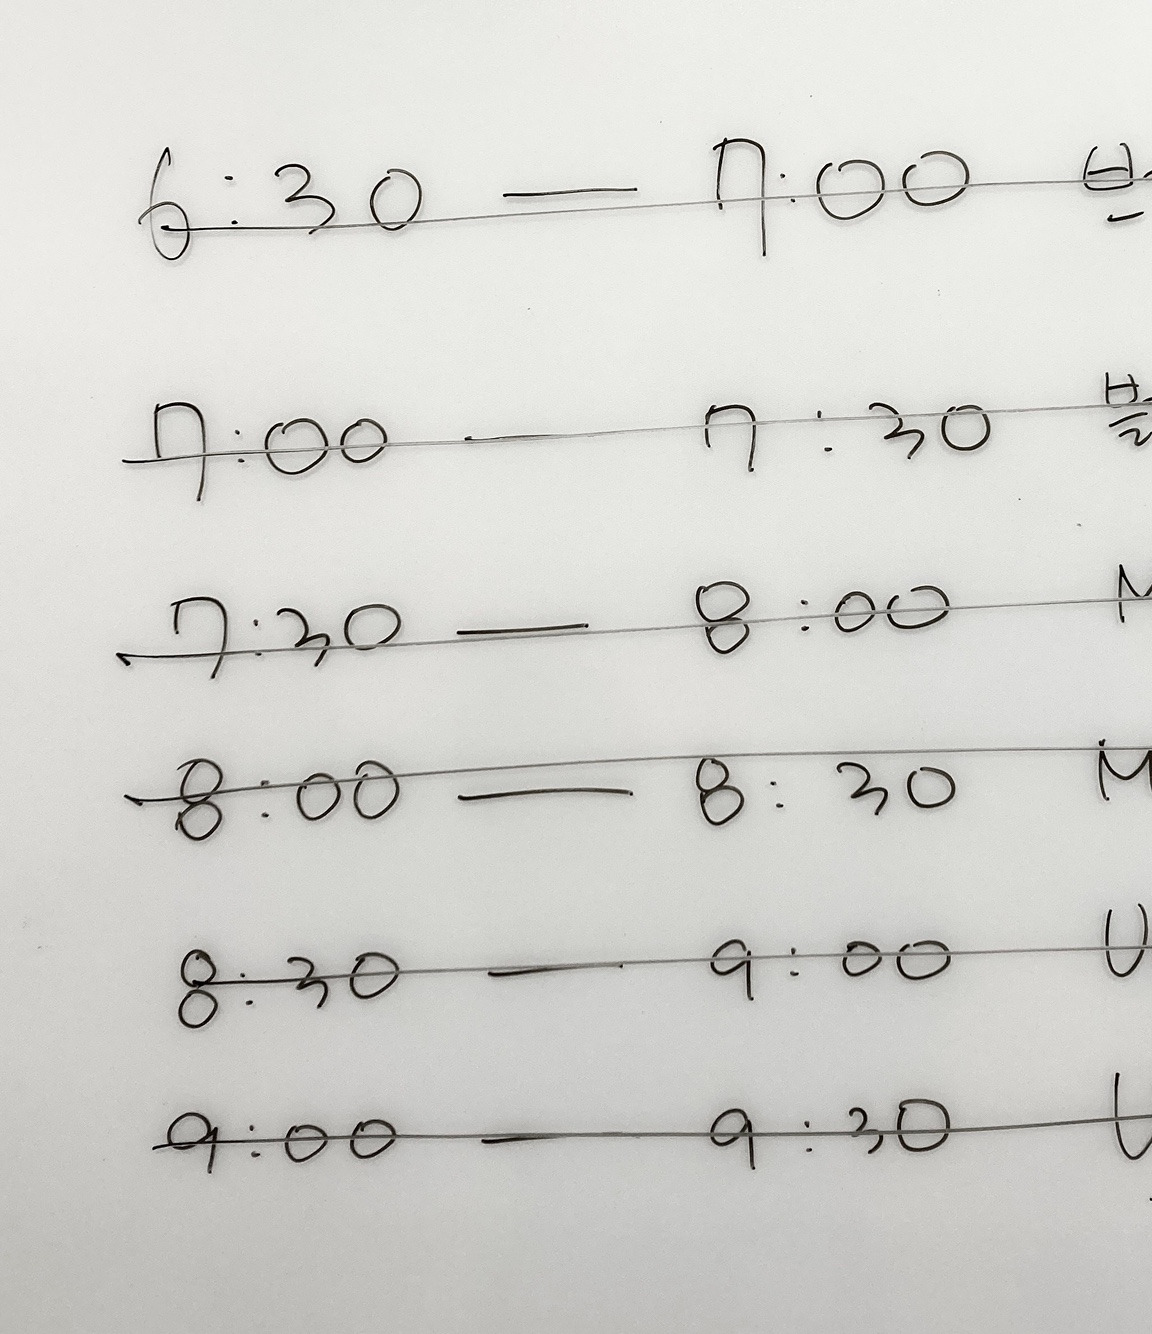 6:30 — 7:00
7:00 — 7:30
7:30 — 8:00 M
8:00 — 8:30 M
8:30 — 9:00 U
9:00 — 9:30 U